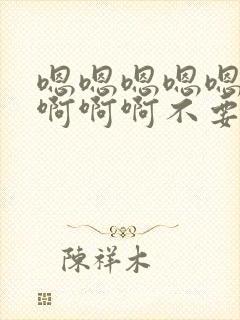 嗯嗯嗯嗯嗯
啊啊啊不要
陳祥木